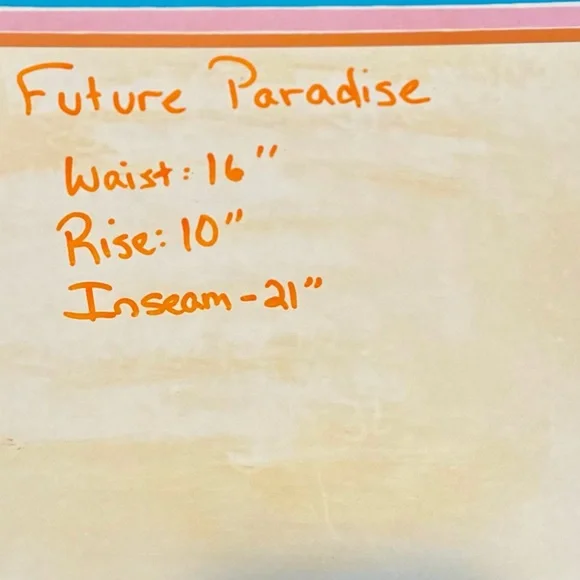 Future Paradise
Waist: 16"
Rise: 10"
Inseam-21"